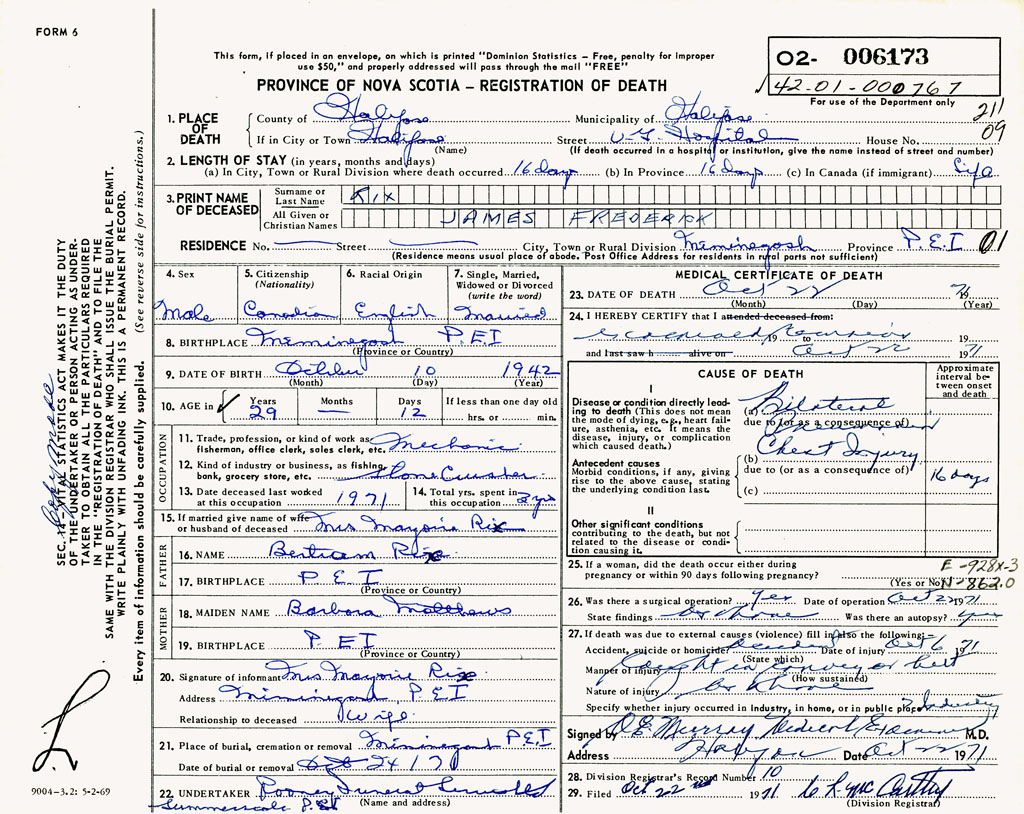 FORM 6
This form, if placed in an envelope, on which is printed "Dominion Statistics – Free, penalty for improper
use $50," and properly addressed will pass through the mail "FREE"
PROVINCE OF NOVA SCOTIA – REGISTRATION OF DEATH
02- 006173
42-01-000767
For use of the Department only
211
09
1. PLACE OF DEATH
County of Halifax Municipality of Halifax
If in City or Town Halifax Street V.G. Hospital House No.
(Name) (If death occurred in a hospital or institution, give the name instead of street and number)
2. LENGTH OF STAY (in years, months and days)
(a) In City, Town or Rural Division where death occurred 16 days (b) In Province 16 days (c) In Canada (if immigrant) Life
3. PRINT NAME OF DECEASED
Surname or Last Name RIX
All Given or Christian Names JAMES FREDERICK
RESIDENCE No. Street City, Town or Rural Division Miminegash Province P.E.I 01
(Residence means usual place of abode. Post Office Address for residents in rural parts not sufficient)
4. Sex Male
5. Citizenship (Nationality) Canadian
6. Racial Origin English
7. Single, Married, Widowed or Divorced (write the word) Married
8. BIRTHPLACE Miminegash P.E.I
(Province or Country)
9. DATE OF BIRTH October 10 1942
(Month) (Day) (Year)
10. AGE in Years 29 Months — Days 12 If less than one day old hrs. or min.
OCCUPATION
11. Trade, profession, or kind of work as fisherman, office clerk, sales clerk, etc. Mechanic
12. Kind of industry or business, as fishing, bank, grocery store, etc. Stone Crusher
13. Date deceased last worked at this occupation 1971
14. Total yrs. spent in this occupation 2 yrs
15. If married give name of wife or husband of deceased Mrs Marjorie Rix
FATHER
16. NAME Bertram Rix
17. BIRTHPLACE P E I
(Province or Country)
MOTHER
18. MAIDEN NAME Barbara Matthews
19. BIRTHPLACE P.E I
(Province or Country)
20. Signature of informant Mrs Marjorie Rix
Address Miminegash, P.E.I
Relationship to deceased Wife
21. Place of burial, cremation or removal Miminegash P.E.I
Date of burial or removal Oct 24/71
22. UNDERTAKER Rooney Funeral
Summerside P.E.I (Name and address)
MEDICAL CERTIFICATE OF DEATH
23. DATE OF DEATH Oct 22 71
(Month) (Day) (Year)
24. I HEREBY CERTIFY that I attended deceased from:
19 to 19
and last saw h alive on Oct 22 1971
CAUSE OF DEATH
Approximate interval between onset and death
I
Disease or condition directly leading to death (This does not mean the mode of dying, e.g., heart failure, asthenia, etc. It means the disease, injury, or complication which caused death.)
(a) Bilateral
due to (or as a consequence of)
(b) Chest Injury
Antecedent causes
Morbid conditions, if any, giving rise to the above cause, stating the underlying condition last.
due to (or as a consequence of) 16 days
(c)
II
Other significant conditions contributing to the death, but not related to the disease or condition causing it.
25. If a woman, did the death occur either during pregnancy or within 90 days following pregnancy?
(Yes or No)
E -928X-3
N-862.0
26. Was there a surgical operation? Yes Date of operation Oct 22 1971
State findings as above Was there an autopsy? yes
27. If death was due to external causes (violence) fill in also the following:–
Accident, suicide or homicide? Accident Date of injury Oct 6 1971
(State which)
Manner of injury Caught in conveyor belt
(How sustained)
Nature of injury as above
Specify whether injury occurred in industry, in home, or in public place Industry
Signed by D.E. Murray Medical Examiner M.D.
Address Date Oct 22 1971
28. Division Registrar's Record Number 10
29. Filed Oct 22 1971
(Division Registrar)
SEC. 14 – VITAL STATISTICS ACT MAKES IT THE DUTY
OF THE UNDERTAKER OR PERSON ACTING AS UNDERTAKER
TO OBTAIN ALL THE PARTICULARS REQUIRED
IN THE "REGISTRATION OF DEATH" AND TO FILE THE
SAME WITH THE DIVISION REGISTRAR WHO SHALL ISSUE THE BURIAL PERMIT.
WRITE PLAINLY WITH UNFADING INK. THIS IS A PERMANENT RECORD.
Every item of information should be carefully supplied. (See reverse side for instructions.)
9004-3.2: 5-2-69